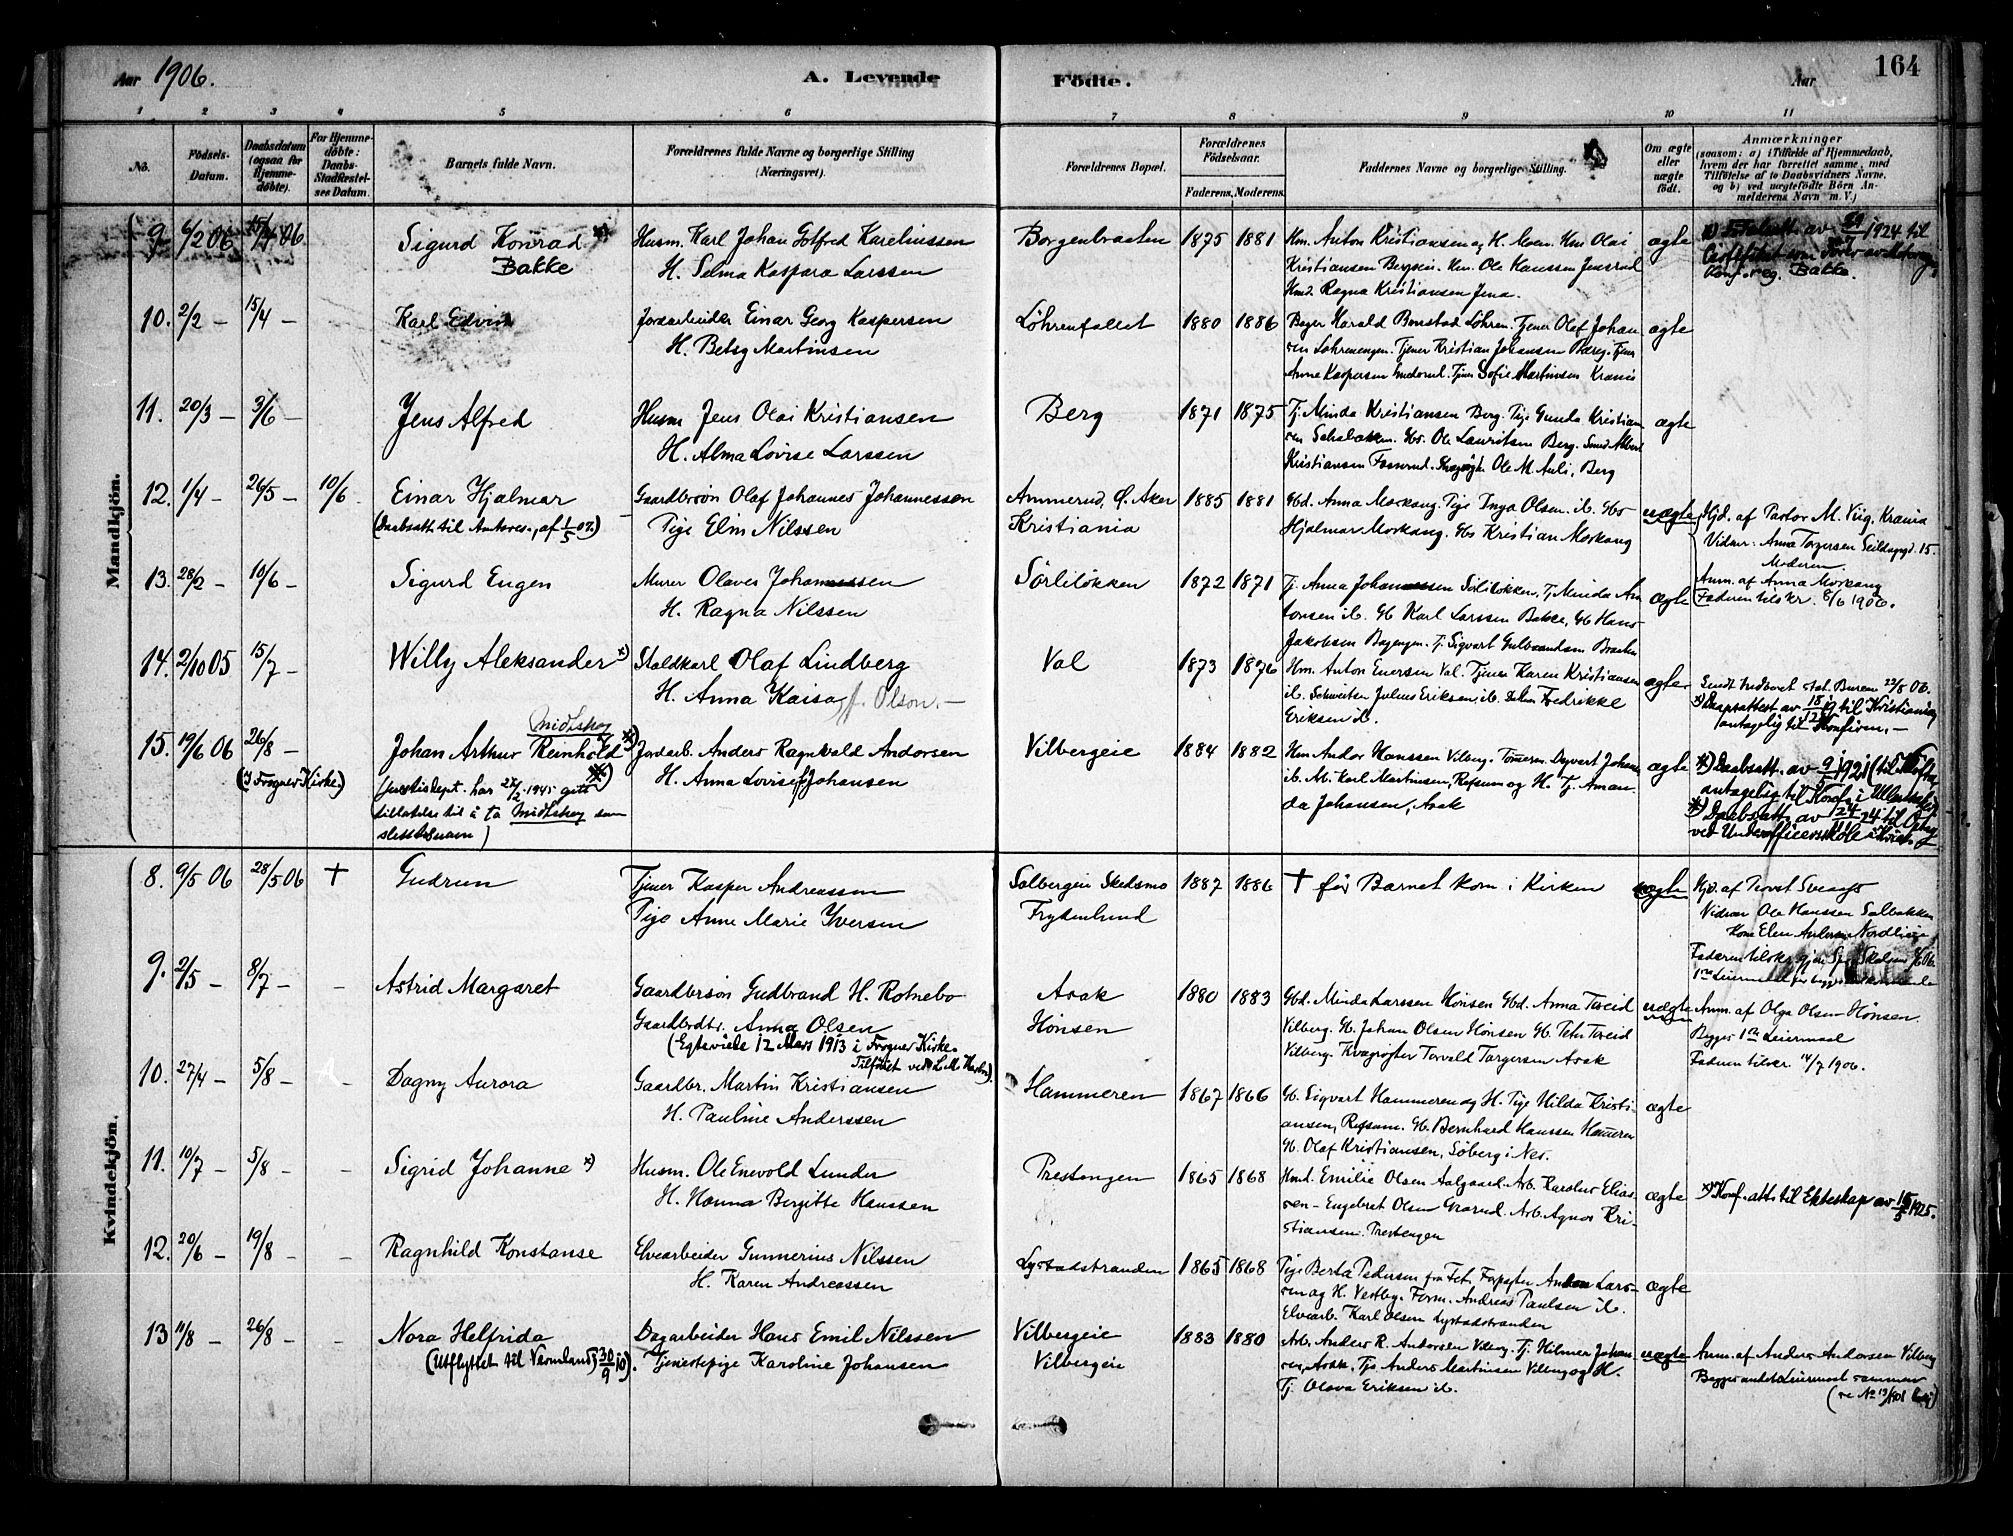 Aar 1906.
A. Levende
Födte.
Aar
164
1 2 3 4 5 6 7 8 9 10 11
No.
Födsels-Datum.
Daabsdatum (ogsaa for Hjemmedöbte).
For Hjemmedöbte: Daabs-Stadfæstelses Datum.
Barnets fulde Navn.
Forældrenes fulde Navne og borgerlige Stilling (Næringsvei).
Forældrenes Bopæl.
Forældrenes Födselsaar.
Faderens. Moderens.
Faddernes Navne og borgerlige Stilling.
Om ægte eller uægte födt.
Anmærkninger
(saasom: a) i Tilfælde af Hjemmedaab,
hvem der har forrettet samme, med
Tilföielse af to Daabsvidners Navne,
og b) ved uægtefödte Börn An-
melderens Navn m. V.)
Mandkjön.
9. 6/2 06 15/4 06 Sigurd Konrad *)
Bakke
Husm. Karl Johan Gotfred Kareliussen
H. Selma Kaspara Larssen
Borgenbraaten 1875 1881
Hm. Anton Kristiansen og H. Moen. Hm Olai
Kristiansen Bergsei. Hm. Ole Hanssen Jensrud
Hmd. Ragna Kristiansen Jena.
ægte
1924 til
Konf. reg. Bakke.
10. 2/2 – 15/4 – Karl Edvin
Jordarbeider Einar Georg Kaspersen
H. Betsy Martinsen
Löhrenfallet 1880 1886
Bager Harald Bonstad Löhren. Tjener Olaf Johan
sen Löhrenengen. Tjener Kristian Johansen Berg. Tjener
Anne Kaspersen . Tjener Sofie Martinsen Krania
ægte
11. 20/3 – 3/6 – Jens Alfred
Husm Jens Olai Kristiansen
H. Alma Lovise Larssen
Berg 1871 1875
Tj. Minda Kristiansen Berg. Pige Gunda Kristian
sen . Gbs. Ole Lauritsen Berg. Smed Albert
Kristiansen Fosserud. Ole M. Auli, Berg
ægte
12. 1/4 – 26/5 – 10/6 – Einar Hjalmar
(Daabsatt til Amtsv., af 1/5 07.)
Gaardbrsön Olaf Johannes Johannessen
Pige Elin Nilssen
Ammerud, Ö. Aker
Kristiania
1885 1881
Gbd. Anna Morkang. Pige Inga Olsen ib. Gbs
Hjalmar Morkang. Gbs Kristian Morkang
uægte
Hjd. af Pastor M. Viig. Krania
Vidner: Anna Torgersen Seildugsgd. 15.
Moderen.
Anm. af Anna Morkang
Faderen tilskr. 8/6 1906.
13. 28/2 – 10/6 – Sigurd Eugen
Murer Olaves Johannessen
H. Ragna Nilssen
Sörlilökken 1872 1871
Tj. Anna Johannessen Sörlilökken, Tj. Minda An
tonsen ib. Gb Karl Larssen Bakke, Gb Hans
Jakobsen Bagengen. Tj. Sigvart Gulbrandsen Braaten
ægte
14. 2/10 05 15/7 – Willy Aleksander *)
Staldkarl Olaf Lindberg
H. Anna Kaisa f. Olson. –
Val 1873 1876
Hm. Anton Enersen Val. Tjener Karen Kristiansen
ib. Schweitser Julius Eriksen ib. Fredrikke
Eriksen ib.
ægte
Sendt Indberet. stat. Buren 23/8 06.
*) Daapsattest av til Kristiania
(antagelig til Konfirm. –
15. 19/6 06 26/8 –
(i Frogner Kirke.)
Midtskog
Johan Arthur Reinhold
(Justisdept. har 27/2 1945 gitt
tillatelse til å ta Midtskog som
slektsnavn)
Jordarb. Anders Ragnvald Andersen
H. Anna Lovise Johansen
Vilbergeie 1884 1882
Hm Andor Hanssen Vilberg. Tömmerm. Dagvart Johans.
ib. Arb. Karl Martinsen, Refsum og H. Tj. Aman-
da Johansen, Asak
ægte
*) Daabsatt. av 9/5 1921 (til
antagelig til Konf. i Ullensaker
*) Daabsatt. av 24/11 24 til Optag.
ved Underofficersskole i Krist.
Kvindekjön.
8. 9/5 06 28/5 06 † Gudrun
Tjener Kasper Andreassen
Pige Anne Marie Iversen
Solbergeie Skedsmo
Frydenlund
1887 1886
† för Barnet kom i Kirken
uægte
Hjd. af Provst Sveaas
Vidner Ole Hanssen Solbakken
Kone Elen Andersen Nordlieie
9. 2/5 – 8/7 – – Astrid Margaret
Gaardbrsön Gudbrand H. Rotnebo
Gaardbrdtr. Anna Olsen
(Egteviede 12 Mars 1913 i Frogner Kirke.
Tilföiet ved L. M. Harbo).
Asak
Hönsen
1880 1883
Gbd. Minda Larssen Hönsen Gbd. Anna Tveid
Vilberg. Gb. Johan Olsen Hönsen Gb. Peter Tveid
Vilberg. Kvægrögter Torvald Torgersen Asak
uægte
Anm. af Olga Olsen Hönsen
Begges 1ste Leiermaal
Faderen tilskr. 14/7 1906.
10. 27/4 – 5/8 – – Dagny Aurora
Gaardbr. Martin Kristiansen
H. Pauline Anderssen
Hammeren 1867 1866
Gb. Sigvart Hammeren og H. Pige Hilda Kristi-
ansen, Refsum. Gb. Bernhard Hanssen Hammeren
Gb. Olaf Kristiansen, Söberg i Nes.
ægte
11. 10/7 – 5/8 – – Sigrid Johanne *)
Husm. Ole Enevold Lunder
H. Hanna Bergitte Hanssen
Prestengen 1865 1868
Hmd. Emilie Olsen Aalgaard. Arb. Karolus Elias-
sen – Engebret Olsen Grorud. Arb. Agnes Kri-
stiansen. Prestengen
ægte
*) Konf. att. til Ekteskap av 15/5 1925.
12. 20/6 – 19/8 – – Ragnhild Konstanse
Elvearbeider Gunnerius Nilssen
H. Karen Andreassen
Lystadstranden 1865 1868
Pige Berta Pedersen fra Fet, Forpagter Anton Lars-
sen og H. Vestby. Form. Andreas Paulsen ib.
Elvearb. Karl Olsen Lystadstranden
ægte
13 11/8 – 26/8 – – Nora Helfrida
(Utflyttet til Vermland, 30/9 10).
Dagarbeider Hans Emil Nilssen
Tjenestepige Karoline Johansen
Vilbergeie
Vilbergeie
1883 1880
Arb. Anders R. Andersen Vilberg. Tj. Hilmer Johan-
sen, Asak, Tj. Anders Martinsen Vilberg og H.
Tj. Olava Eriksen ib.
uægte
Anm. af Anders Andersen Vilberg
Begges andet Leiermaal sammen
(se No 13/1901 )